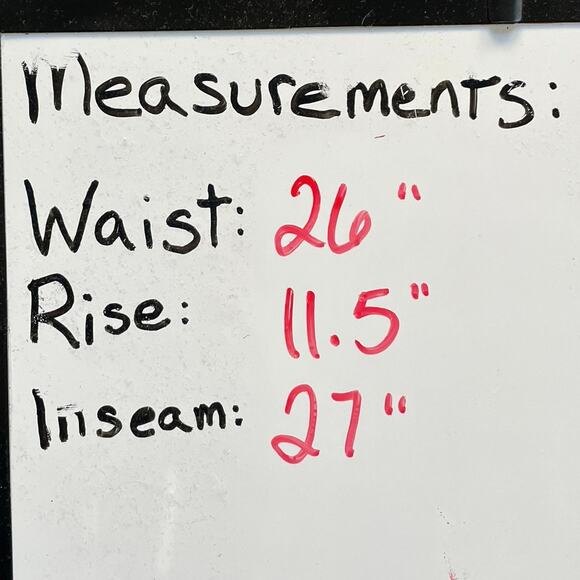 Measurements:
Waist: 26"
Rise: 11.5"
Inseam: 27"